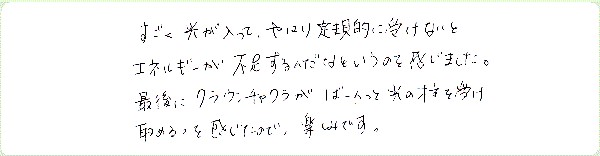 すごく光が入って、やはり定期的に受けないと
エネルギーが不足するんだなというのを感じました。
最後にクラウンチャクラがばーんっと光の柱を受け
取めるのを感じたので、楽しみです。